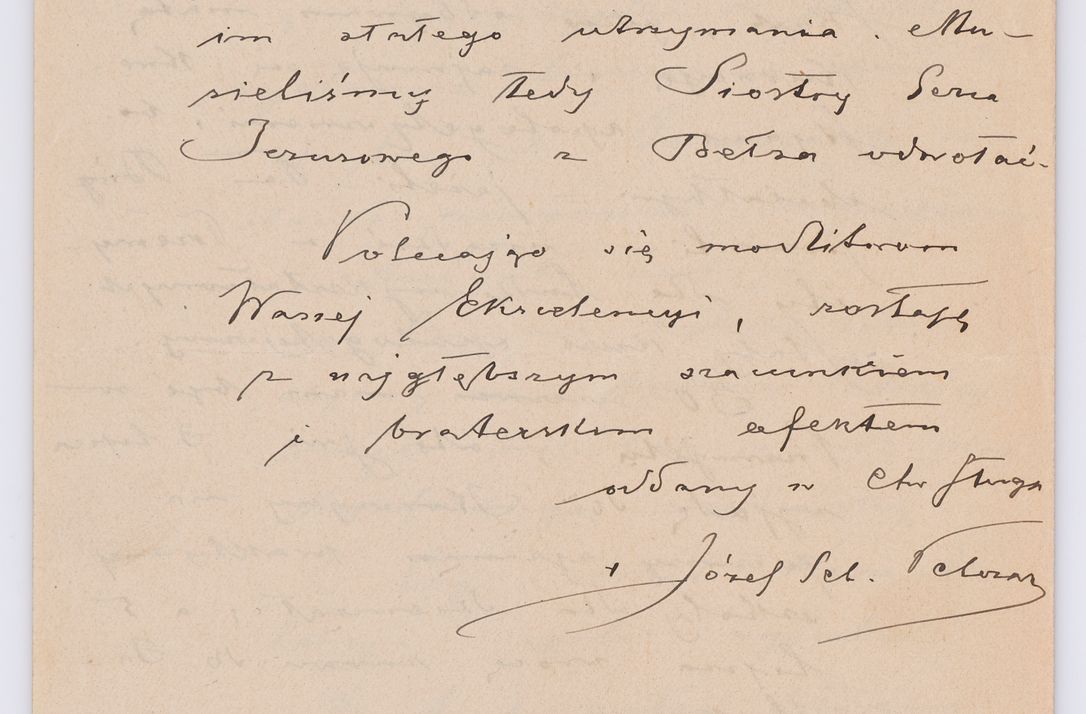 im stałego utrzymania. Mu-
sieliśmy tedy Siostry Serca
Jezusowego z Bełza odwołać.
Polecając się modlitwom
Waszej Ekscelencyi, zostaję
z najgłębszym szacunkiem
i braterskim afektem
oddany w Chr sługa
+ Józef Seb. Pelczar